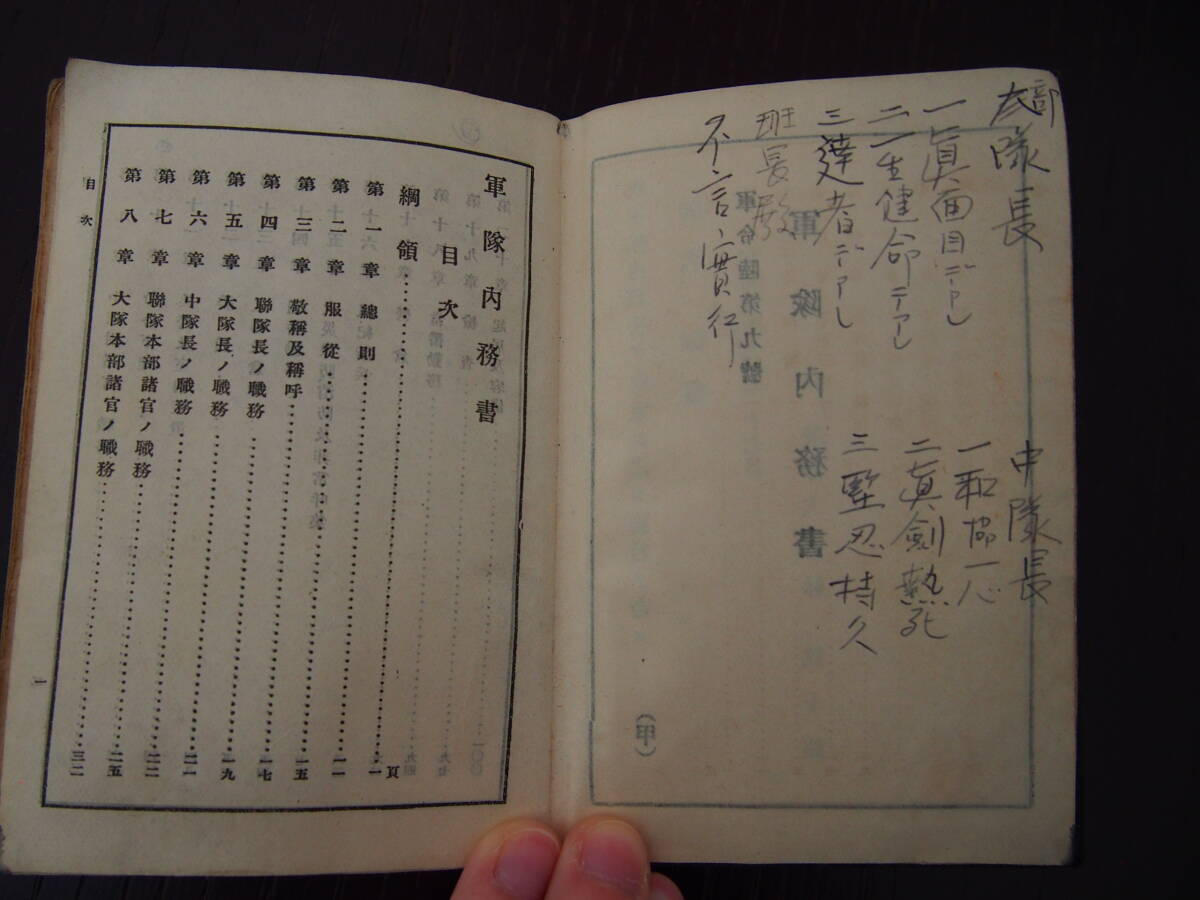 部隊長
一眞面目デアレ
二生健命デアレ
三達者デアレ
班長殿
不言實行
中隊長
一和協一心
二眞劍熱死
三堅忍持久
軍隊內務書
目次
頁
綱領……一
第一章 總則……一一
第二章 服從……一五
第三章 敬稱及稱呼……一七
第四章 聯隊長ノ職務……一九
第五章 大隊長ノ職務……二一
第六章 中隊長ノ職務……二二
第七章 聯隊本部諸官ノ職務……二五
第八章 大隊本部諸官ノ職務……三二
目次
一